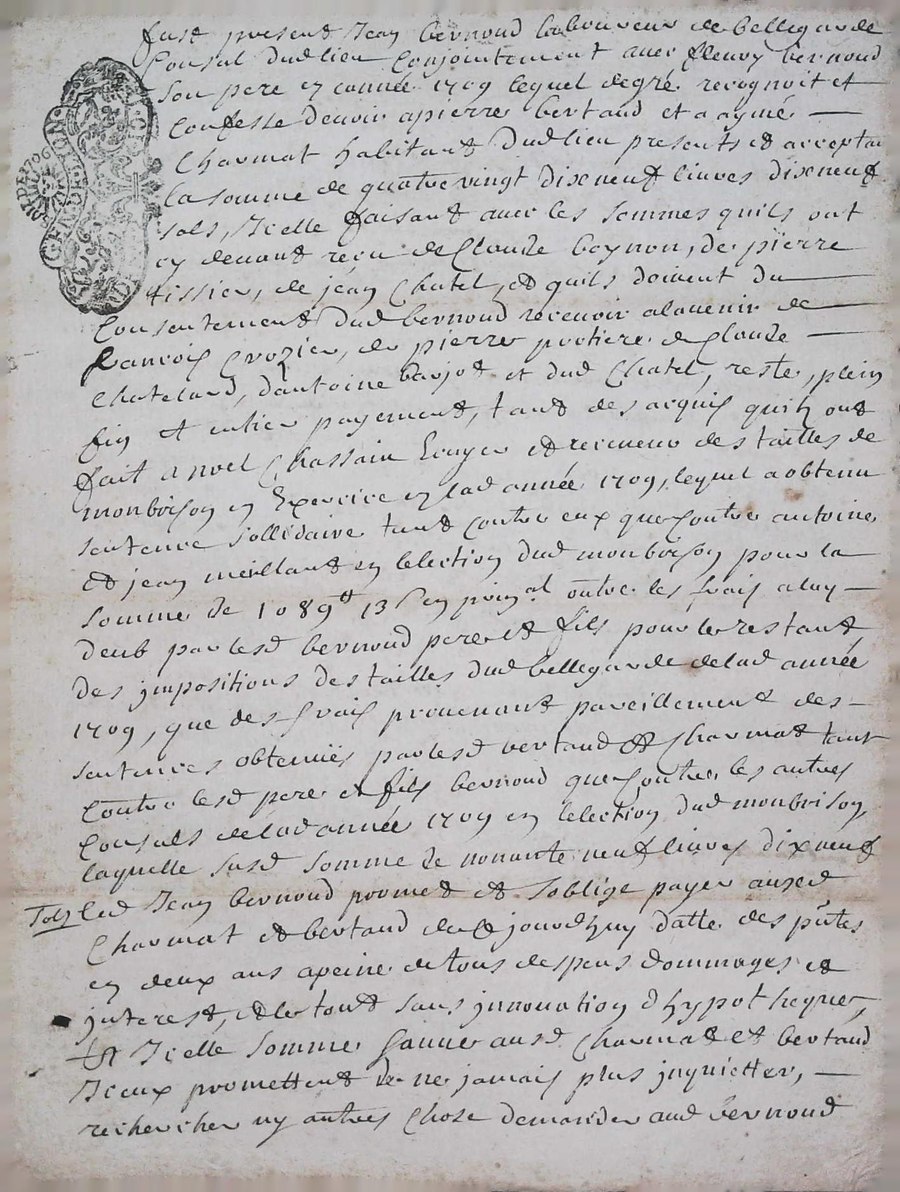 fust present Jean bernoud laboureur de bellegarde
Consul dud lieu Conjointement avec fleury bernoud
son pere en lannée 1709 lequel de gré recognoit et
Confesse devoir a pierre bertaud et a aymé
Charmat habitant dud lieu presents et acceptan
la somme de quatre vingt dix neuf livres dix neuf
sols, Icelle faisant avec les sommes quils ont
cy devant reçu de Claude boynon, de pierre
tissier, de jean Chatel, et quils doivent du
Consentement dud bernoud recevoir a lavenir de
francois Crozier, de pierre portier de Claude
Chatelard, dantoine barjot et dud Chatel, reste, plein
fin et entier payement, tant des acquis quils ont
fait a noel Chassain Ecuyer et receveur des tailles de
monbrison en Exercice en lad année 1709, lequel a obtenu
sentence sollidaire tant contre eux que Contre antoine
et jean meillant en lelection dud monbrison pour la
somme de 1089ᵗᵗ 13 s en prinpal outre les frais a luy
deub par lesd bernoud pere et fils pour le restant
des impositions des tailles dud bellegarde de lad année
1709, que des frais provenant pareillement des
sentences obtenuës par lesd bertaud et Charmat tant
Contre lesd pere et fils bernoud que Contre les autres
Consuls de lad année 1709 en lelection dud monbrison,
laquelle susd somme de nonante neuf livres dix neuf
sols led Jean bernoud promet et soblige payer ausd
Charmat et bertaud de ce jourdhuy datte des pntes
en deux ans a peine de tous despens dommages et
interest, et le tout sans innovation dhypotheque,
et Icelle somme payée ausd Charmat et bertaud
Iceux promettent de ne jamais plus inquietter,
rechercher ny autres Chose demander aud bernoud
GEN DE LYON